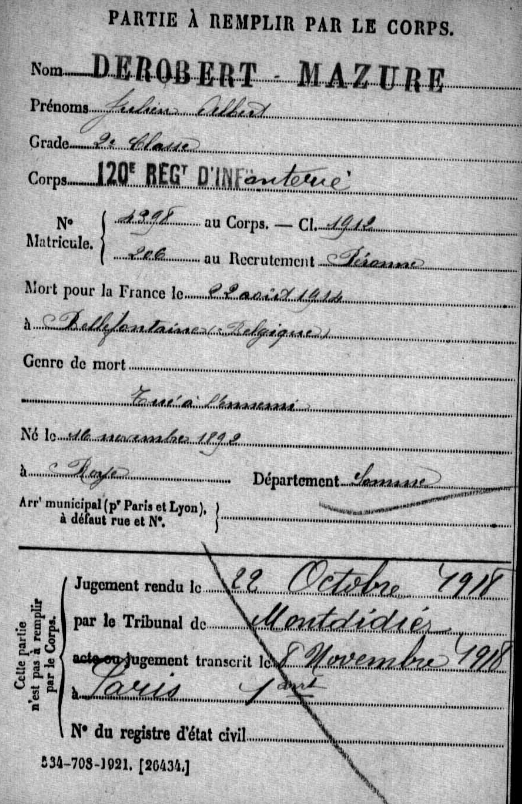 PARTIE À REMPLIR PAR LE CORPS.
Nom DEROBERT - MAZURE
Prénoms Julien Albert
Grade 2e Classe
Corps 120E REGT D'INFanterie
No Matricule. { 4398 au Corps. — Cl. 1912
206 au Recrutement Péronne
Mort pour la France le 22 août 1914
à Bellefontaine (Belgique)
Genre de mort
Tué à l'ennemi
Né le 16 novembre 1892
à Roye Département Somme
Arrt municipal (pr Paris et Lyon), à défaut rue et No. }
Cette partie n'est pas à remplir par le Corps.
Jugement rendu le 22 Octobre 1918
par le Tribunal de Montdidier
acte ou jugement transcrit le 8 Novembre 1918
à Paris 1er arrt
No du registre d'état civil
534-708-1921. [26434.]